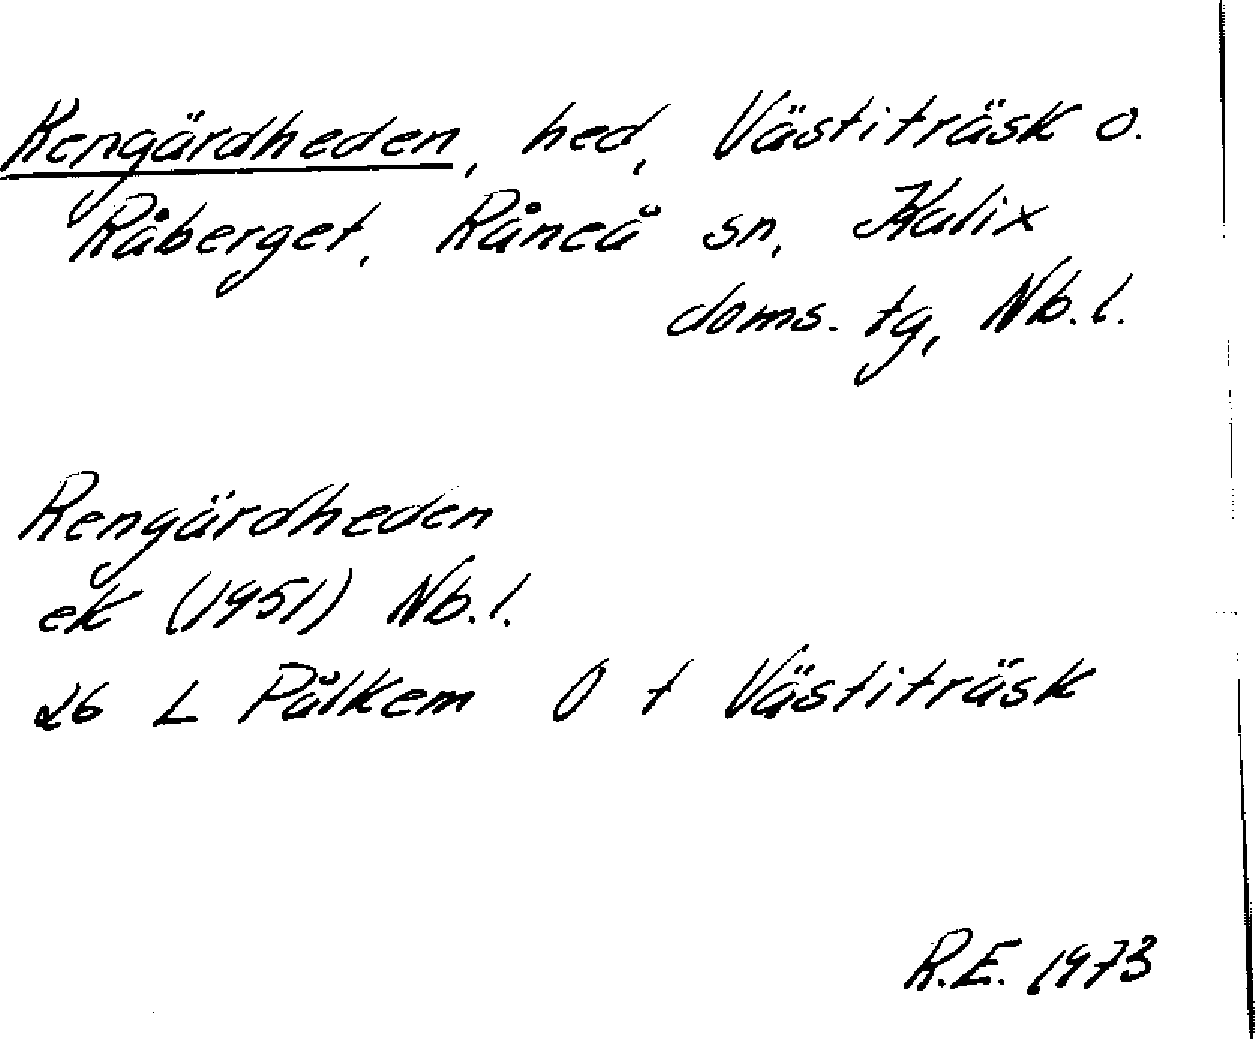 Rengärdheden, hed, Västiträsk o.
Råberget, Råneå sn, Kalix
doms. tg, Nb.l.
Rengärdheden
ek (1951) Nb.l.
26 L Pålkem O t Västiträsk
R.E. 1973